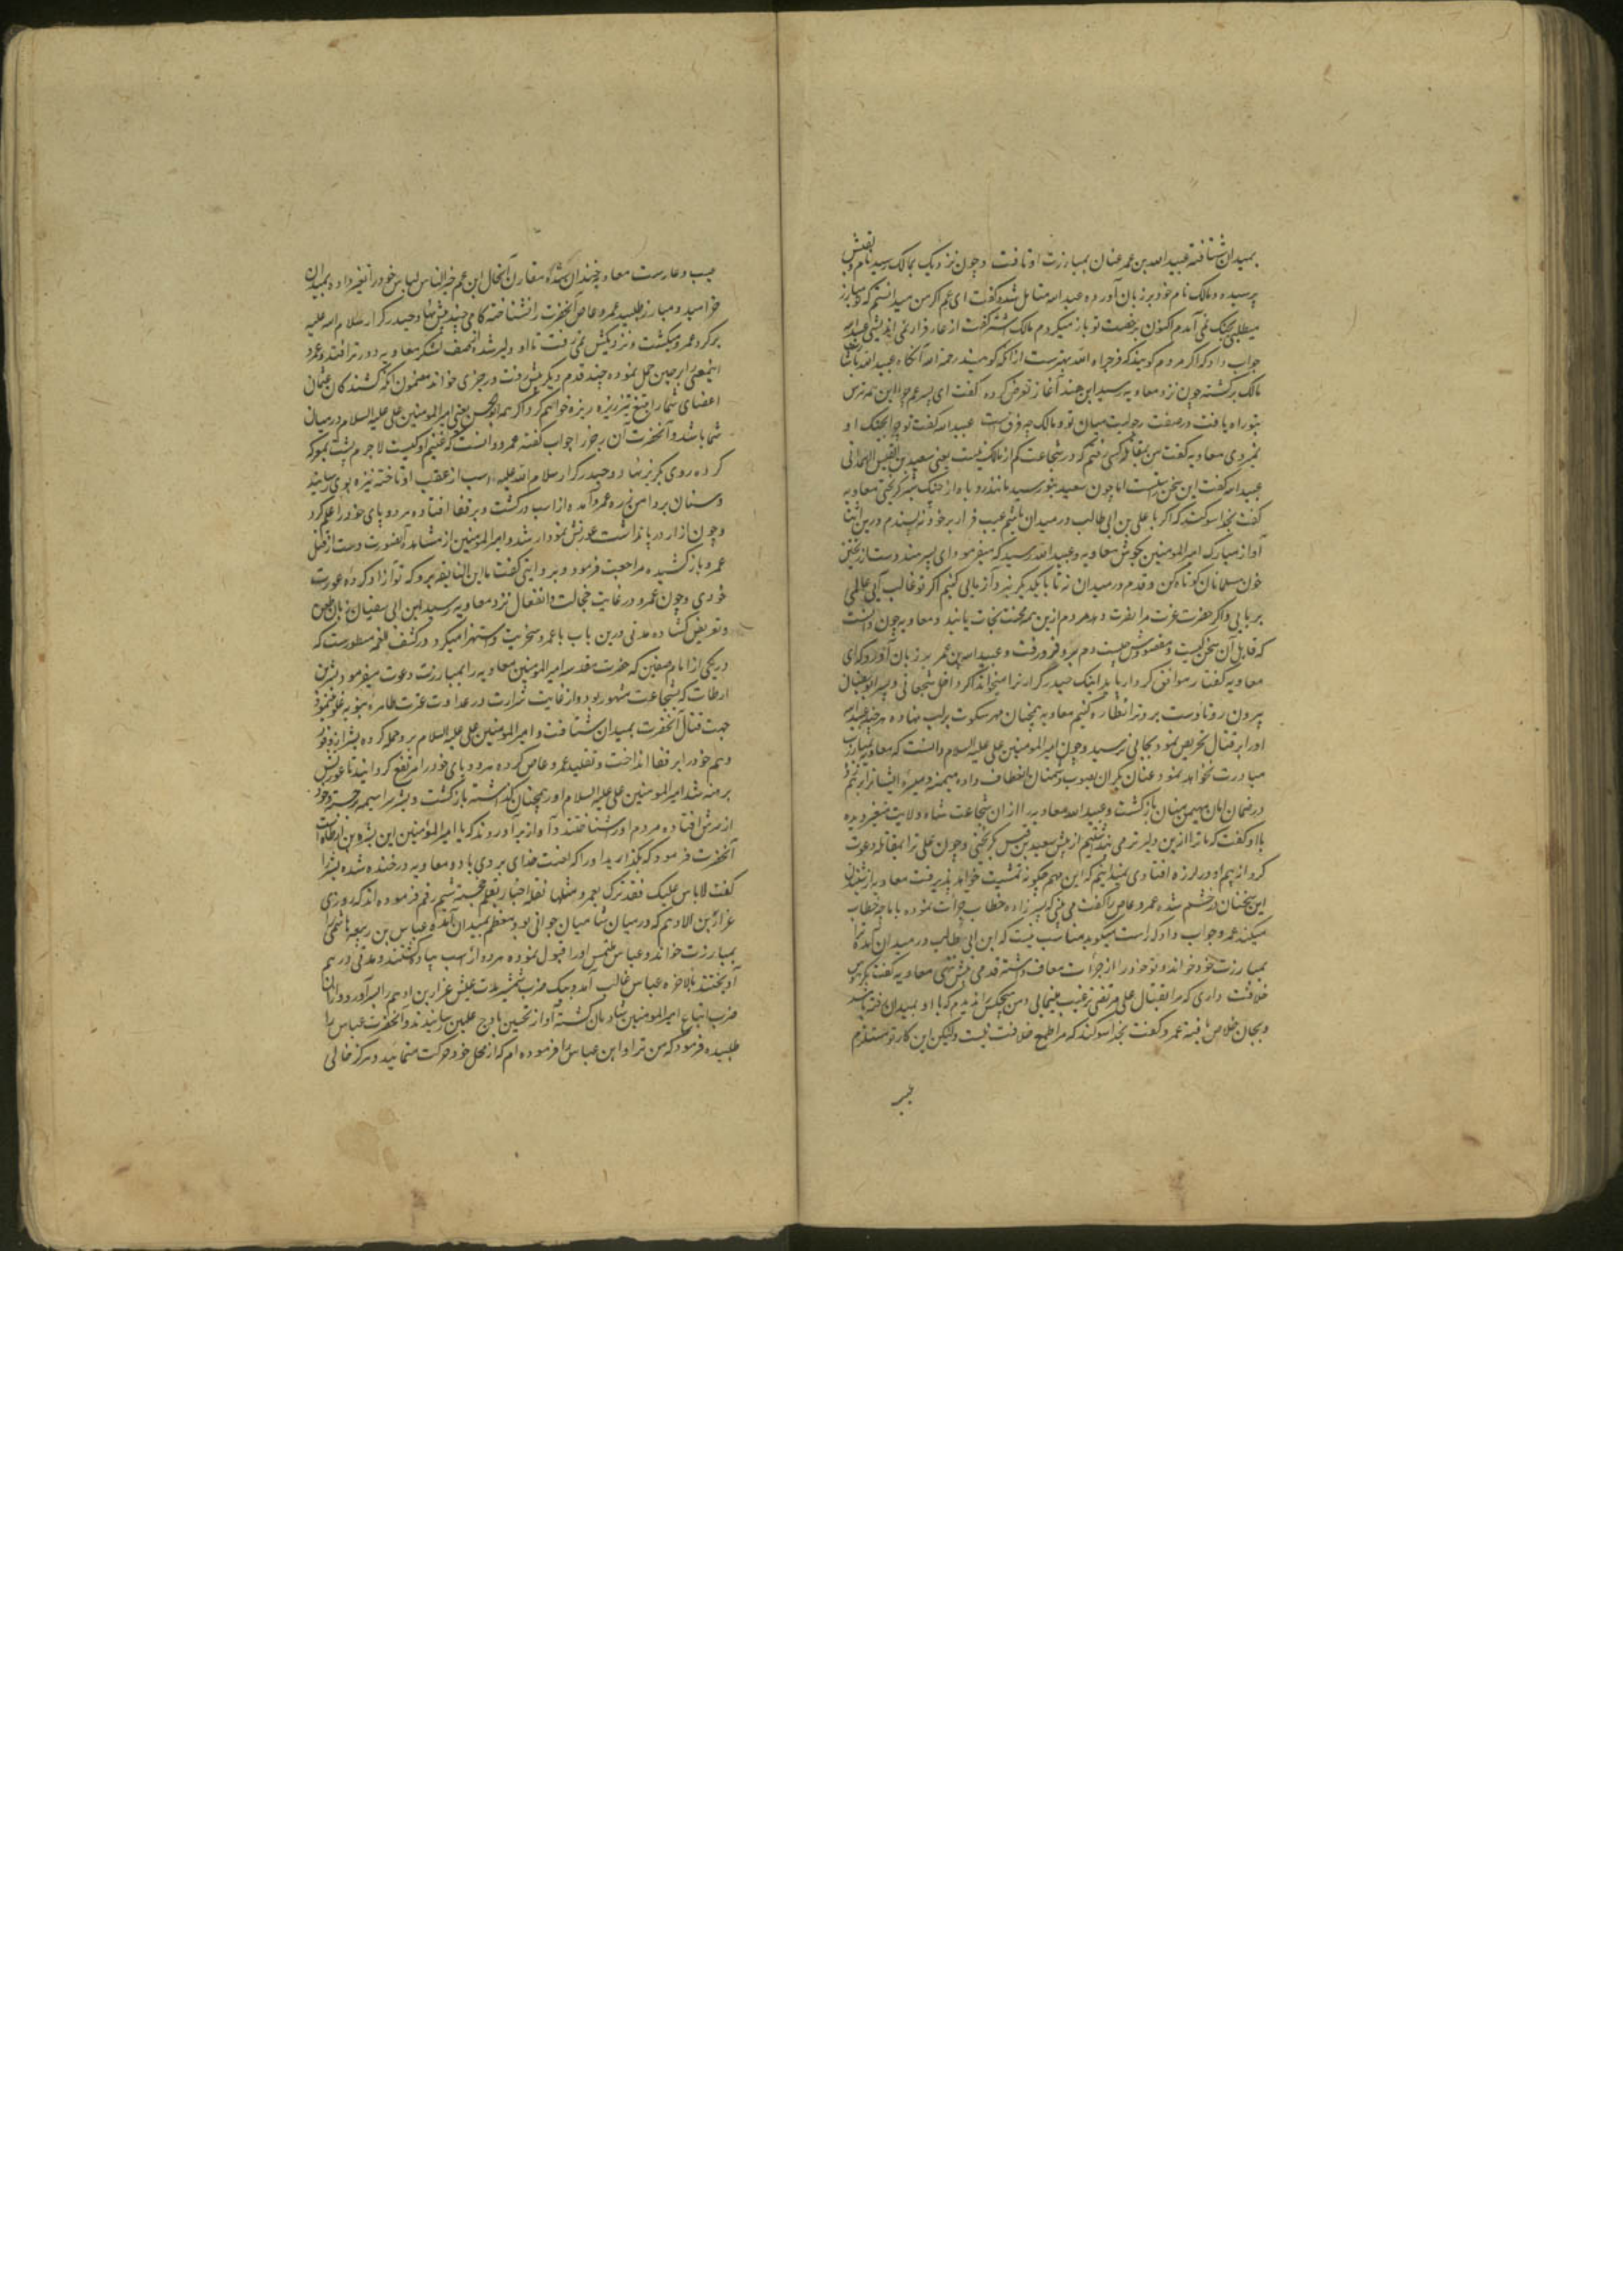 بمیدان شتافته عبید الله بن عمر عنان بمبارزت او تافت و چون نزدیک بمالک رسید نام و نقبش
پرسیده و مالک نام خود بر زبان آورده عبید الله متامل شد و کفت ای عم اکر من میدانستم که تو مبارز
میطلبی بجنک نمی آمدم اکنون برخصت تو باز میکردم مالک اشتر کفت از عار فرار نمی اندیشی عبید الله
جواب داد که اکر مردم کویند که فر جزاه الله بهترست از انکه کویند رحمه الله آنکاه عبید الله باشارت
مالک برکشته چون نزد معاویه رسید ابن هند آغاز تعرض کرده کفت ای پسر عم چرا این همه ترس
بتو راه یافت در صفت رجولیت میان تو و مالک چه فرق ست عبید الله کفت تو چرا بجنک او
نمیروی معاویه کفت من بمقابله کسی رفتم که در شجاعت کم از مالک نیست یعنی سعید بن القیس الهمدانی
عبید الله کفت این سخن راستست اما چون سعید بتو رسید مانند روباه از جنک شیر کریختی معاویه
کفت بخدا سوکند که اکر با علی بن ابی طالب در میدان باشم عیب فرار بر خود نه پسندم درین اثنا
آواز مبارک امیر المومنین بکوش معاویه و عبید الله رسید که میفرمود ای پسر هند دست از ریختن
خون مسلمانان کوتاه کن و قدم در میدان نه تا با یکدیکر نبرد آزمایی کنیم اکر تو غالب آیی عالمی
بربایی و اکر حضرت عزت مرا نصرت دهد مردم ازین همه محنت نجات یابند و معاویه چون دانست
که قایل آن سخن کیست و مقصودش چیست دم بدو فرو رفت و عبید الله بن عمر بر زبان آورد که ای
معاویه کفتار موافق کردار باید اینک حیدر کرار ترا میخواند اکر داخل شجعانی و پسر ابو سفیان
بیرون رو تا دست برد ترا نظاره کنیم معاویه همچنان مهر سکوت بر لب نهاده هر چند عبید الله
او را بر قتال تحریص نمود بجایی نرسید و چون امیر المومنین علی علیه السلام دانست که معاویه بمبارزت
مبادرت نخواهد نمود عنان یکران بصوب دشمنان انعطاف داده میمنه و میسره ایشانرا بر هم زد
در ضمان امان مهیمن منان بازکشت و عبید الله معاویه را از ان شجاعت شاه ولایت متغیر دیده
با او کفت که ما ترا ازین دلیرتر می پنداشتیم از پیش سعید بن قیس کریختی و چون علی ترا بمقاتله دعوت
کرد از بیم او در لرزه افتادی نمیدانیم که این مهم چکونه تمشیت خواهد پذیرفت معاویه از شنیدن
این سخنان در خشم شده عمرو عاص را کفت می بینی که پسر زاده خطاب جرأت نموده با ما چه خطاب
میکند عمرو جواب داد که راست میکوید مناسب نیست که ابن ابی طالب در میدان آمده ترا
بمبارزت خود خواند و تو خود را از جرأت معاف داشته قدمی پیش ننهی معاویه کفت مکر هوس
خلافت داری که مرا بقتال علی مرتضی ترغیب مینمایی و من هیچکس را ندیدم که با او بمیدان رفته باشد
و بجان خلاص یافته عمرو کفت بخدا سوکند که مرا طمع خلافت نیست ولیکن این کار تو مستلزم
عیب و عارست معاویه خندان شده مقارن آنحال ابن عم خیر الناس لباس خود را تغییر داده بمیدان
خرامید و مبارز طلبید عمرو عاص آنحضرت را نشناخته کامی چند پیش نهاد و حیدر کرار سلام الله علیه
بر کرد عمرو میکشت و نزدیکش نمی رفت تا او دلیر شده از صف لشکر معاویه دورتر افتد و عمرو
اینمعنی را بر جبن حمل نموده چند قدم دیکر پیش رفت و رجزی خواند مضمون آنکه کشندکان عثمان
اعضای شما را بتیغ تیز ریزه ریزه خواهم کرد اکر همه ابو الحسن یعنی امیر المومنین علی علیه السلام در میان
شما باشد و آنحضرت آن رجز را جواب کفته عمرو دانست که غنیم او کیست لاجرم پشت بمعرکه
کرده روی بکریز نهاد و حیدر کرار سلام الله علیه اسب از عقب او تاخته نیزه بوی رسانید
و سنان بر دامن زره عمرو آمده از اسب درکشت و بر قفا افتاده هر دو پای خود را علم کرد
و چون ازار در پا نداشت عورتش نمودار شد و امیر المومنین از مشاهده آنصورت دست از قتل
عمرو باز کشیده مراجعت فرمود و بروایتی کفت یا ابن النابغه برو که تو آزاد کرده عورت
خودی و چون عمرو در غایت خجالت و انفعال نزد معاویه رسید ابن ابی سفیان زبان بطعن
و تعریض کشاده مدتی درین باب با عمرو سخریت و استهزا میکرد و در کشف الغمه مسطورست که
در یکی از ایام صفین که حضرت مقدسه امیر المومنین معاویه را بمبارزت دعوت میفرمود بشر بن
ارطات که بشجاعت مشهور بود و از غایت شرارت در عداوت عترت طاهره نبویه غلو مینمود
جهت قتال آنحضرت بمیدان شتافت و امیر المومنین علی علیه السلام برو حمله کرده بشر از وفور
وهم خود را بر قفا انداخت و تقلید عمرو عاص کرده هر دو پای خود را مرتفع کردانید تا عورتش
برهنه شد امیر المومنین علی علیه السلام او را همچنان کذاشته بازکشت و بشر سراسیمه برخسته و خود
از سرش افتاده مردم او را شناختند و آواز برآوردند که یا امیر المومنین این بشر بن ارطات است
آنحضرت فرمود که بکذارید او را که لعنت خدای بر وی باد و معاویه در خنده شده بشر را
کفت لا باس علیک فقد نزل بعمرو مثلها نقله اخبار بقلم خجسته شیم رقم فرموده اند که روزی
عزار بن الادهم که در میان شامیان جوانی بود معظم بمیدان آمده عباس بن ربیعه هاشمی را
بمبارزت خواند و عباس ملتمس او را قبول نموده هر دو از اسب پیاده کشتند و مدتی در هم
آویختند بالاخره عباس غالب آمد و بیک ضرب شمشیر مدت عیش عزار بن ادهم را بسر آورد و از ان
ضرب اتباع امیر المومنین شادمان کشته آواز تحسین باوج علیین رسانیدند و آنحضرت عباس را
طلبیده فرمود که من ترا و ابن عباس را فرموده ام که از محل خود حرکت منمایید و مرکز خالی